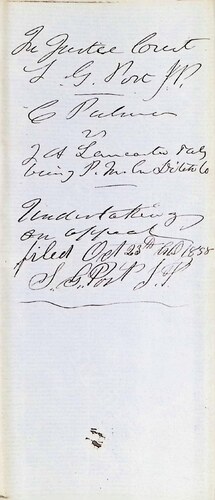 In Justice Court
S. G. Post J.P.
C Palmer
vs
J A Lancaster
being P. M. Dilets Co
Undertaking
on appeal
filed Oct 23th AD 1858
S. G. Post J.P.